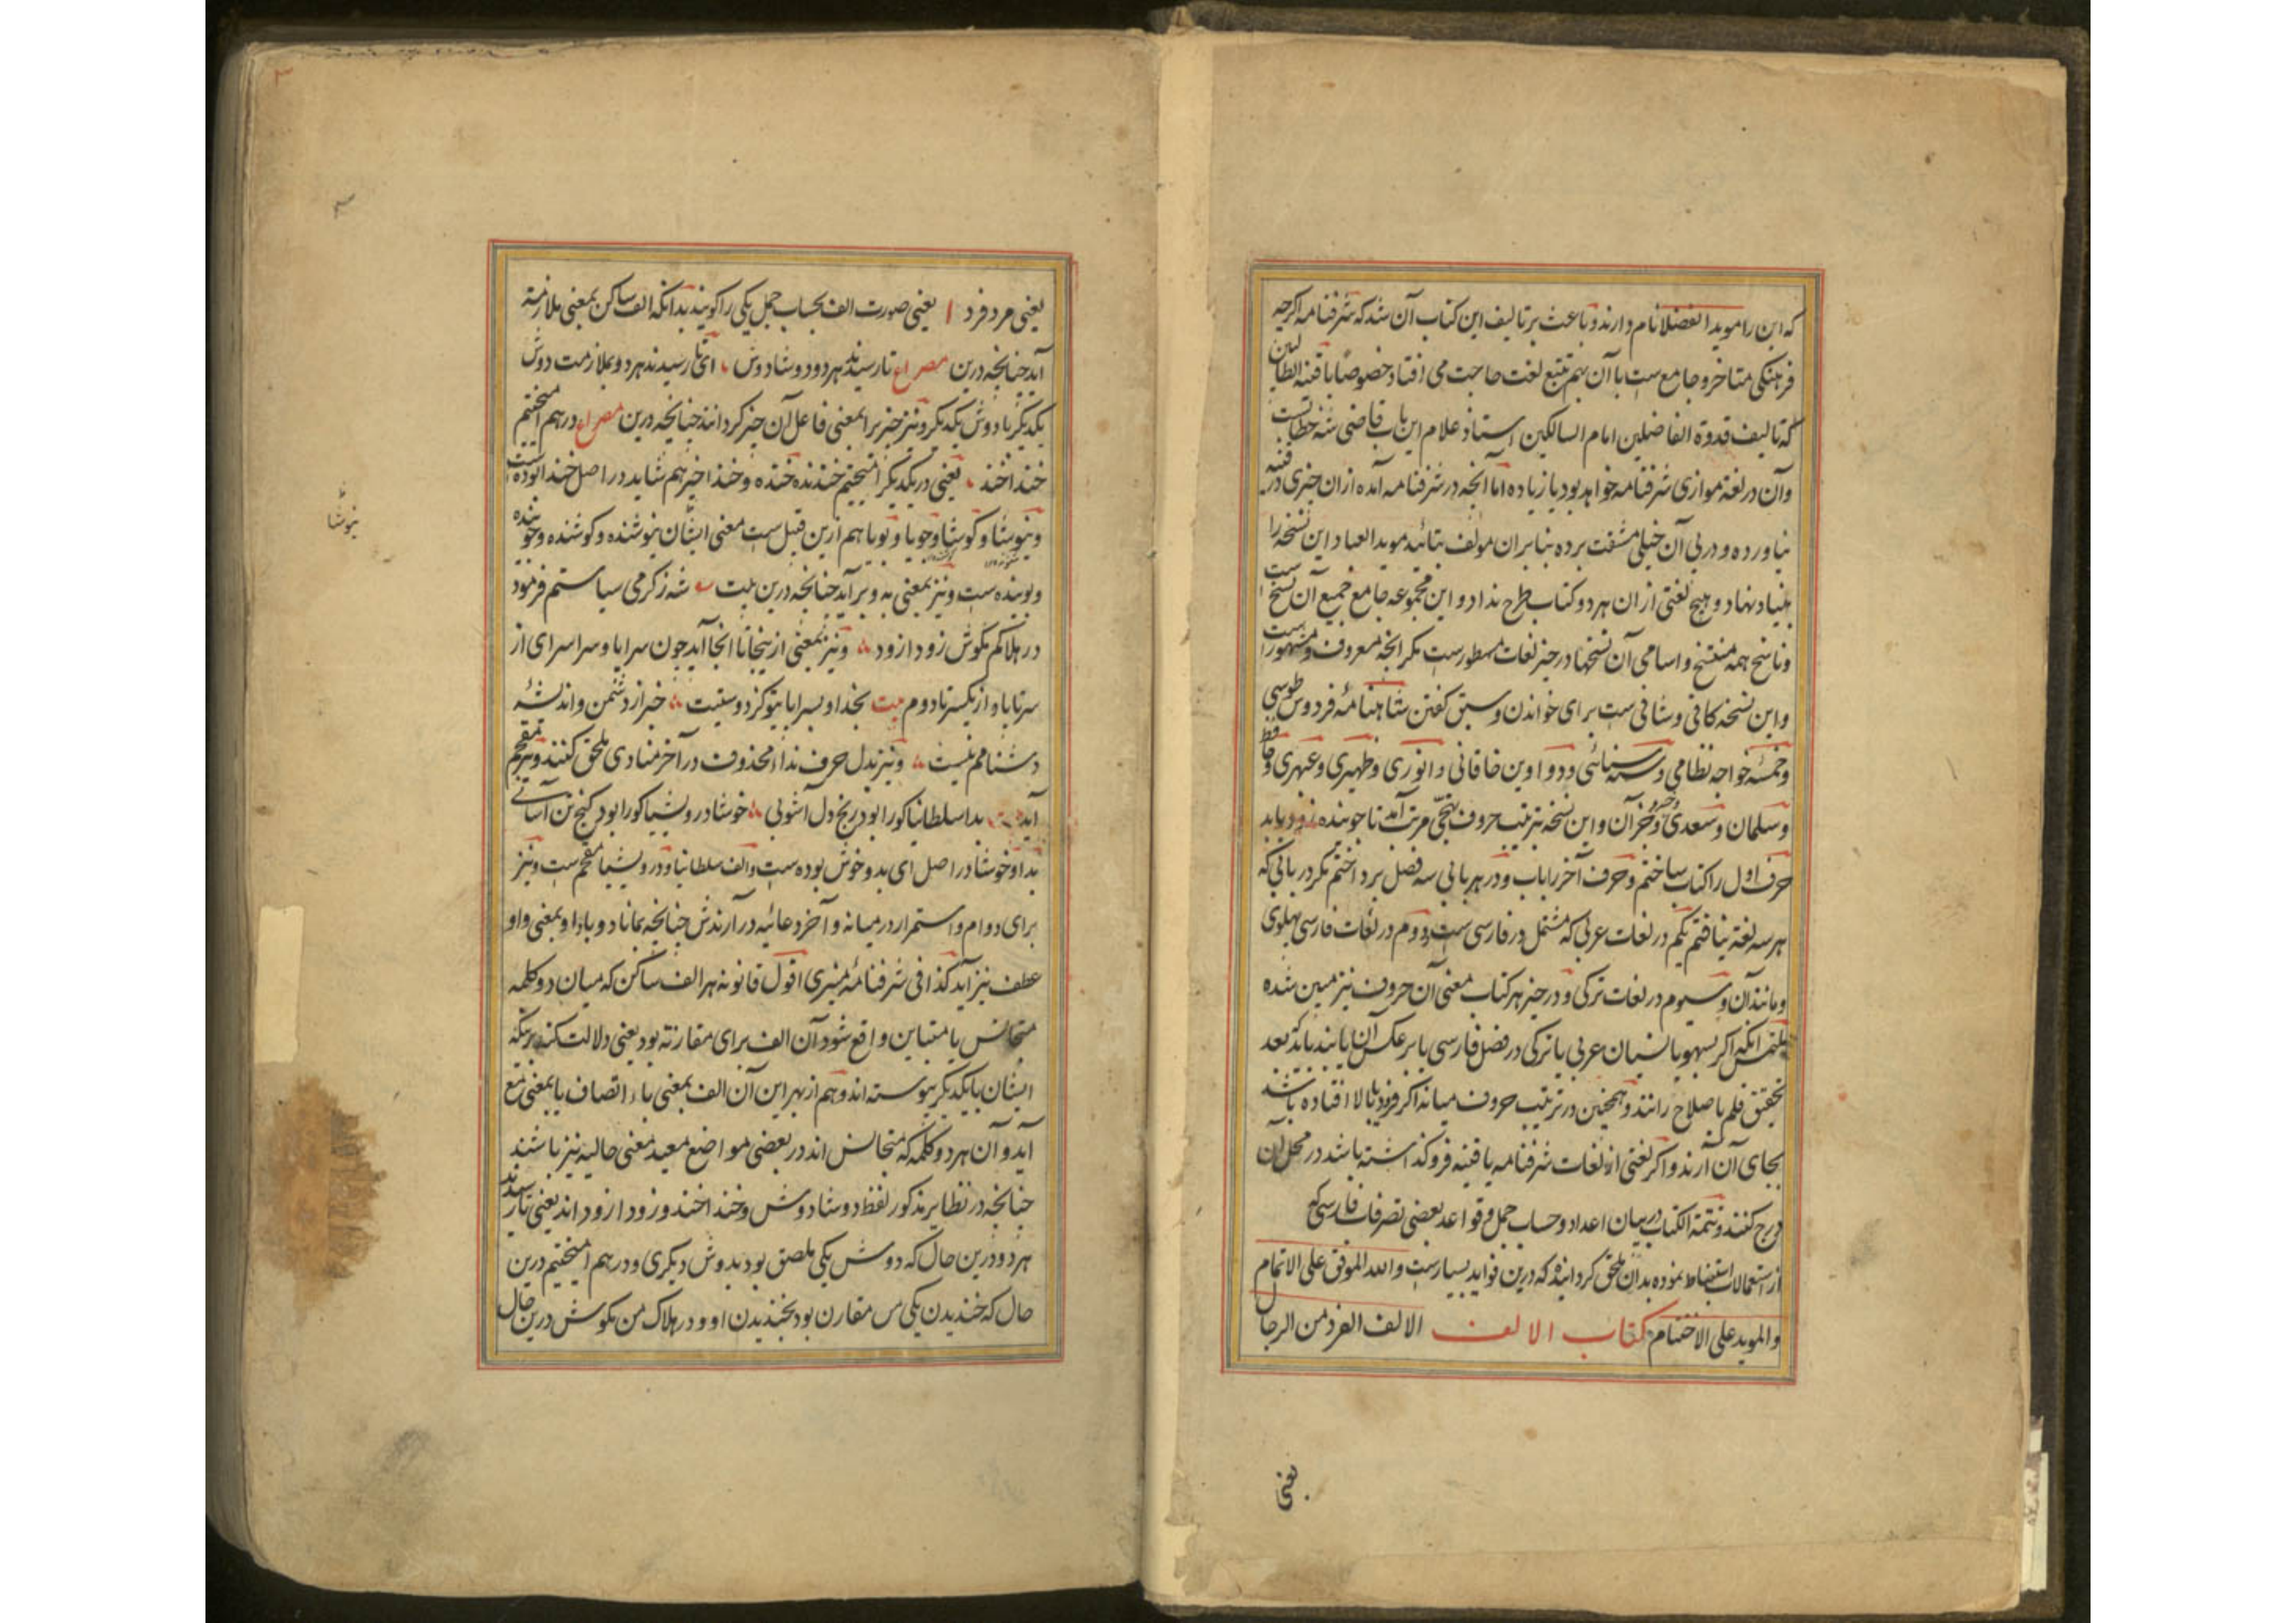 که این را موید الفضلا نام دارند و باعث بر تالیف این کتاب آن شد که شرفنامه اکرچه
فرهنکی متاخر و جامع ست با آن هم تتبع لغت حاجت می افتاد خصوصا با قنیة الطالبین
که تالیف قدوة الفاضلین امام السالکین استاذ علام این باب قاضی شه خطاب ست
وآن در لغة موازی شرفنامه خواهد بود یا زیاده اما آنچه در شرفنامه آمده ازان چیزی در قنیه
نیاورده و در پی آن خیلی مشقت برده بنابران مولف بتائید موید العباد این نسخه را
بنیاد نهاد و هیچ لغتی ازان هر دو کتاب طرح نداد و این مجموعه جامع جمیع آن نسخ ست
وناسخ همه منتسخ و اسامی آن نسخها در حیز لغات مسطورست مکر آنچه معروف و مشهور است
واین نسخه کافی و شافی ست برای خواندن و سبق کفتن شاهنامه فردوس طوسی
وخمسه خواجه نظامی و سته سنائی و دواوین خاقانی و انوری و ظهیری و عبهری و حافظ
وسلمان و سعدی و خسرو و جز آن و این نسخه بترتیب حروف تهجی مرتب آمد تا جوینده زود یابد
حرف اول را کتاب ساختم و حرف آخر را باب و در هر بابی سه فصل پرداختم مکر در بابی که
هر سه لغة نیافتم یکم در لغات عربی که مشتمل در فارسی ست دوم در لغات فارسی پهلوی
ومانند آن و سیوم در لغات ترکی و در حیز هر کتاب معنی آن حروف نیز مبین شده
ملتمس آنکه اکر بسهو یا نسیان عربی یا ترکی در فصل فارسی یا بر عکس آن یابند باید که بعد
تحقیق قلم باصلاح رانند و همچنین در ترتیب حروف میانه اکر فرود بالا افتاده باشد
بجای آن آرند و اکر لغتی از لغات شرفنامه یا قنیه فروکذاشته باشد در محل آن
درج کنند و تتمة الکتاب در بیان اعداد و حساب جمل و قواعد بعضی تصرفات فارسی که
از استعمالات استنباط نموده بدان ملحق کردانیده که درین فواید بسیارست والله الموفق علی الاتمام
والموید علی الاختتام کتاب الالف الالف الفرد من الرجال
یعنی
یعنی مرد فرد ا یعنی صورت الف بحساب جمل یکی را کویند بدانکه الف ساکن بمعنی ملازمة
آید چنانچه درین مصراع تا رسیدند هر دو دوشادوش ای تا رسیدند هر دو بملازمت دوش
یکدیکر با دوش یکدیکر و نیز خبر برا بمعنی فاعل آن چیز کردانند چنانچه درین مصراع درهم آمیختیم
خنداخند یعنی در یکدیکر آمیختیم خندنده خنده و خنداخیز هم شاید در اصل خندا بوده است
ونیوشا و کوشا و جویا و بویا هم ازین قبیل ست معنی ایشان نیوشنده و کوشنده و جوینده
وبوینده ست و نیز بمعنی به و بر آید چنانچه درین بیت شه ز کرمی سیاستم فرمود
در هلاکم مکوش زودازود و نیز بمعنی از ینجا تا انجا آید چون سراپا و سراسرای از
سر تا پا و از یکسر تا دوم بیت بخدا و بسراپا بتو کز دوستیت خبر از دشمن و اندیشه
دشنامم نیست و نیز بدل حرف ندا محذوف در آخر منادی ملحق کنند و نیز مقحم
آید بدا سلطانیا کورا بود رنج دل آشوبی خوشا درویشیا کورا بود کنج تن آسانی
بدا و خوشا در اصل ای بد و خوش بوده ست و الف سلطانیا و درویشیا مقحم ست و نیز
برای دوام و استمرار در میانه و آخر دعائیه در آرندش چنانچه بماناد و بادا و بمعنی واو
عطف نیز آید کذا فی شرفنامه منیری اقول قانونه هر الف ساکن که میان دو کلمه
متجانس یا متباین واقع شود آن الف برای مقارنة بود یعنی دلالت کند برینکه
ایشان بایکدیکر پیوسته اند و هم از بهر این آن الف بمعنی باء اتصاف یا بمعنی مع
آید و آن هر دو کلمه که متجانس اند در بعضی مواضع مفید معنی حالیه نیز باشند
چنانچه در نظایر مذکور لفظ دوشادوش و خنداخند و زودازود اند یعنی تا رسیدند
هر دو درین حال که دوش یکی ملصق بود بدوش دیکری و درهم آمیختیم درین
حال که خندیدن یکی من مقارن بود بخندیدن او و در هلاک من مکوش درین حال
نیوشا